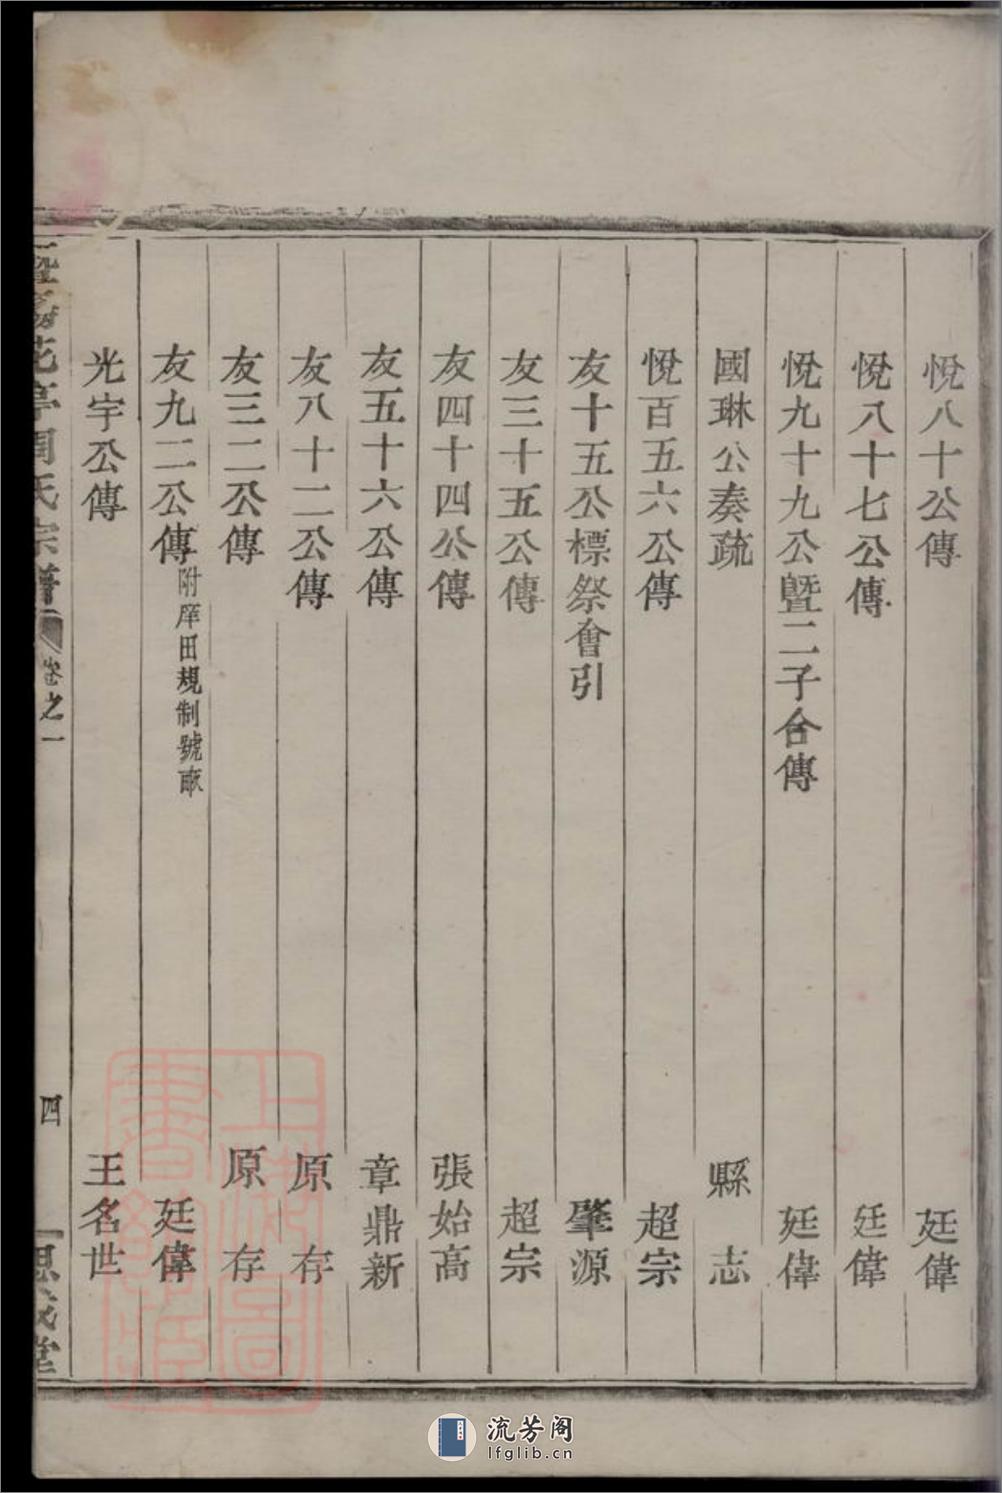 悅八十公傳 廷偉
悅八十七公傳 廷偉
悅九十九公曁二子合傳 廷偉
國琳公奏疏 縣志
悅百五六公傳 超宗
友十五公標祭會引 肇源
友三十五公傳 超宗
友四十四公傳 張始高
友五十六公傳 章鼎新
友八十二公傳 原存
友三二公傳 原存
友九二公傳 附庠田規制號畝 廷偉
光宇公傳 王名世
花亭周氏宗譜 卷之一 四 思成堂
上海圖書館藏
流芳阁
lfglib.cn